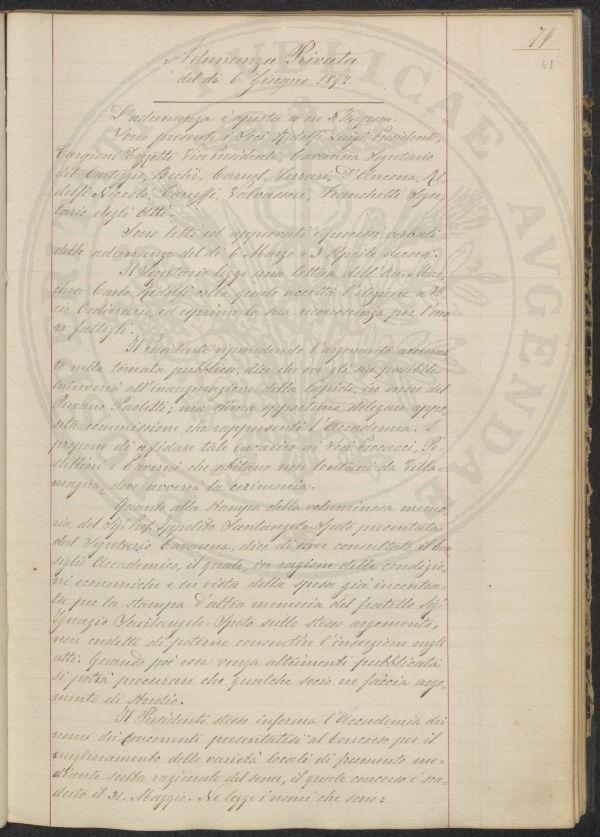 74
41
Adunanza Privata
del dì 6 Giugno 1892
L'adunanza è aperta a ore 2 pom.
Sono presenti i Soci Ridolfi Luigi Presidente,
Targioni Tozzetti Vice Presidente, Cavanna Segretario
del Carteggio, Bechi, Caruel, Ferrari, D'Ancona, Ri
dolfi Niccolò, Caruffi, Valvassori, Franchetti Segre
tario degli Atti.
Sono letti ed approvati i processi verbali
delle adunanze del dì 6 Marzo e 3 Aprile decorsi.
Il Segretario legge una lettera dell' On. Mar
chese Carlo Ridolfi colla quale accetta l'elezione a So
cio Ordinario, ed esprime la sua riconoscenza per l'ono
re fattogli.
Il Presidente riprendendo l'argomento accenna
to nella tornata pubblica, dice che ove gli sia possibile
interverrà all'inaugurazione della lapide, in onore del
Pievano Paoletti; ma stima opportuno delegare appo
sita commissione che rappresenti l'Accademia. E
propone di affidare tale incarico ai Soci Procacci, Pe
stellini e Caverni che abitano non lontani da Villa=
magna, dove avverrà la cerimonia.
Quanto alla stampa della voluminosa memo=
ria del Sig. Prof. Ippolito Santangelo Spoto presentata
dal Segretario Cavanna, dice di aver consultato il Con
siglio Accademico, il quale, in ragione delle condizio
ni economiche e in vista della spesa già incontra=
ta per la stampa d'altra memoria del fratello Sig.
Ignazio Santangelo-Spoto sullo stesso argomento,
non credette di poterne consentire l'inserzione negli
atti. Quando poi essa venga altrimenti pubblicata
si potrà procurare che qualche socio ne faccia argo=
mento di studio.
Il Presidente stesso informa l'Accademia dei
nomi dei concorrenti presentatisi al Concorso per il
miglioramento delle varietà locali di frumento me=
diante scelta razionale del seme, il quale concorso è sca=
duto il 31 Maggio. Ne legge i nomi che sono: